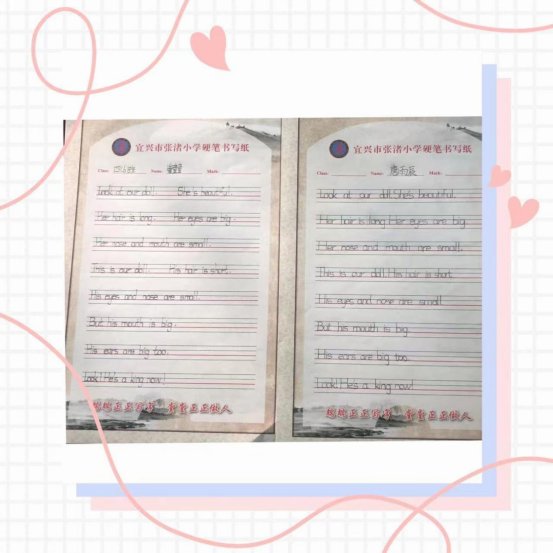 宜兴市张渚小学硬笔书写纸
Class: Name: Mark:
Look at our doll. She's beautiful.
Her hair is long. Her eyes are big.
Her nose and mouth are small.
This is our doll. His hair is short.
His eyes and nose are small.
But his mouth is big.
His ears are big too.
Look! He's a king now!
端端正正写字 堂堂正正做人
宜兴市张渚小学硬笔书写纸
Class: Name: Mark:
Look at our doll. She's beautiful.
Her hair is long. Her eyes are big.
Her nose and mouth are small.
This is our doll. His hair is short.
His eyes and nose are small.
But his mouth is big.
His ears are big too.
Look! He's a king now!
端端正正写字 堂堂正正做人